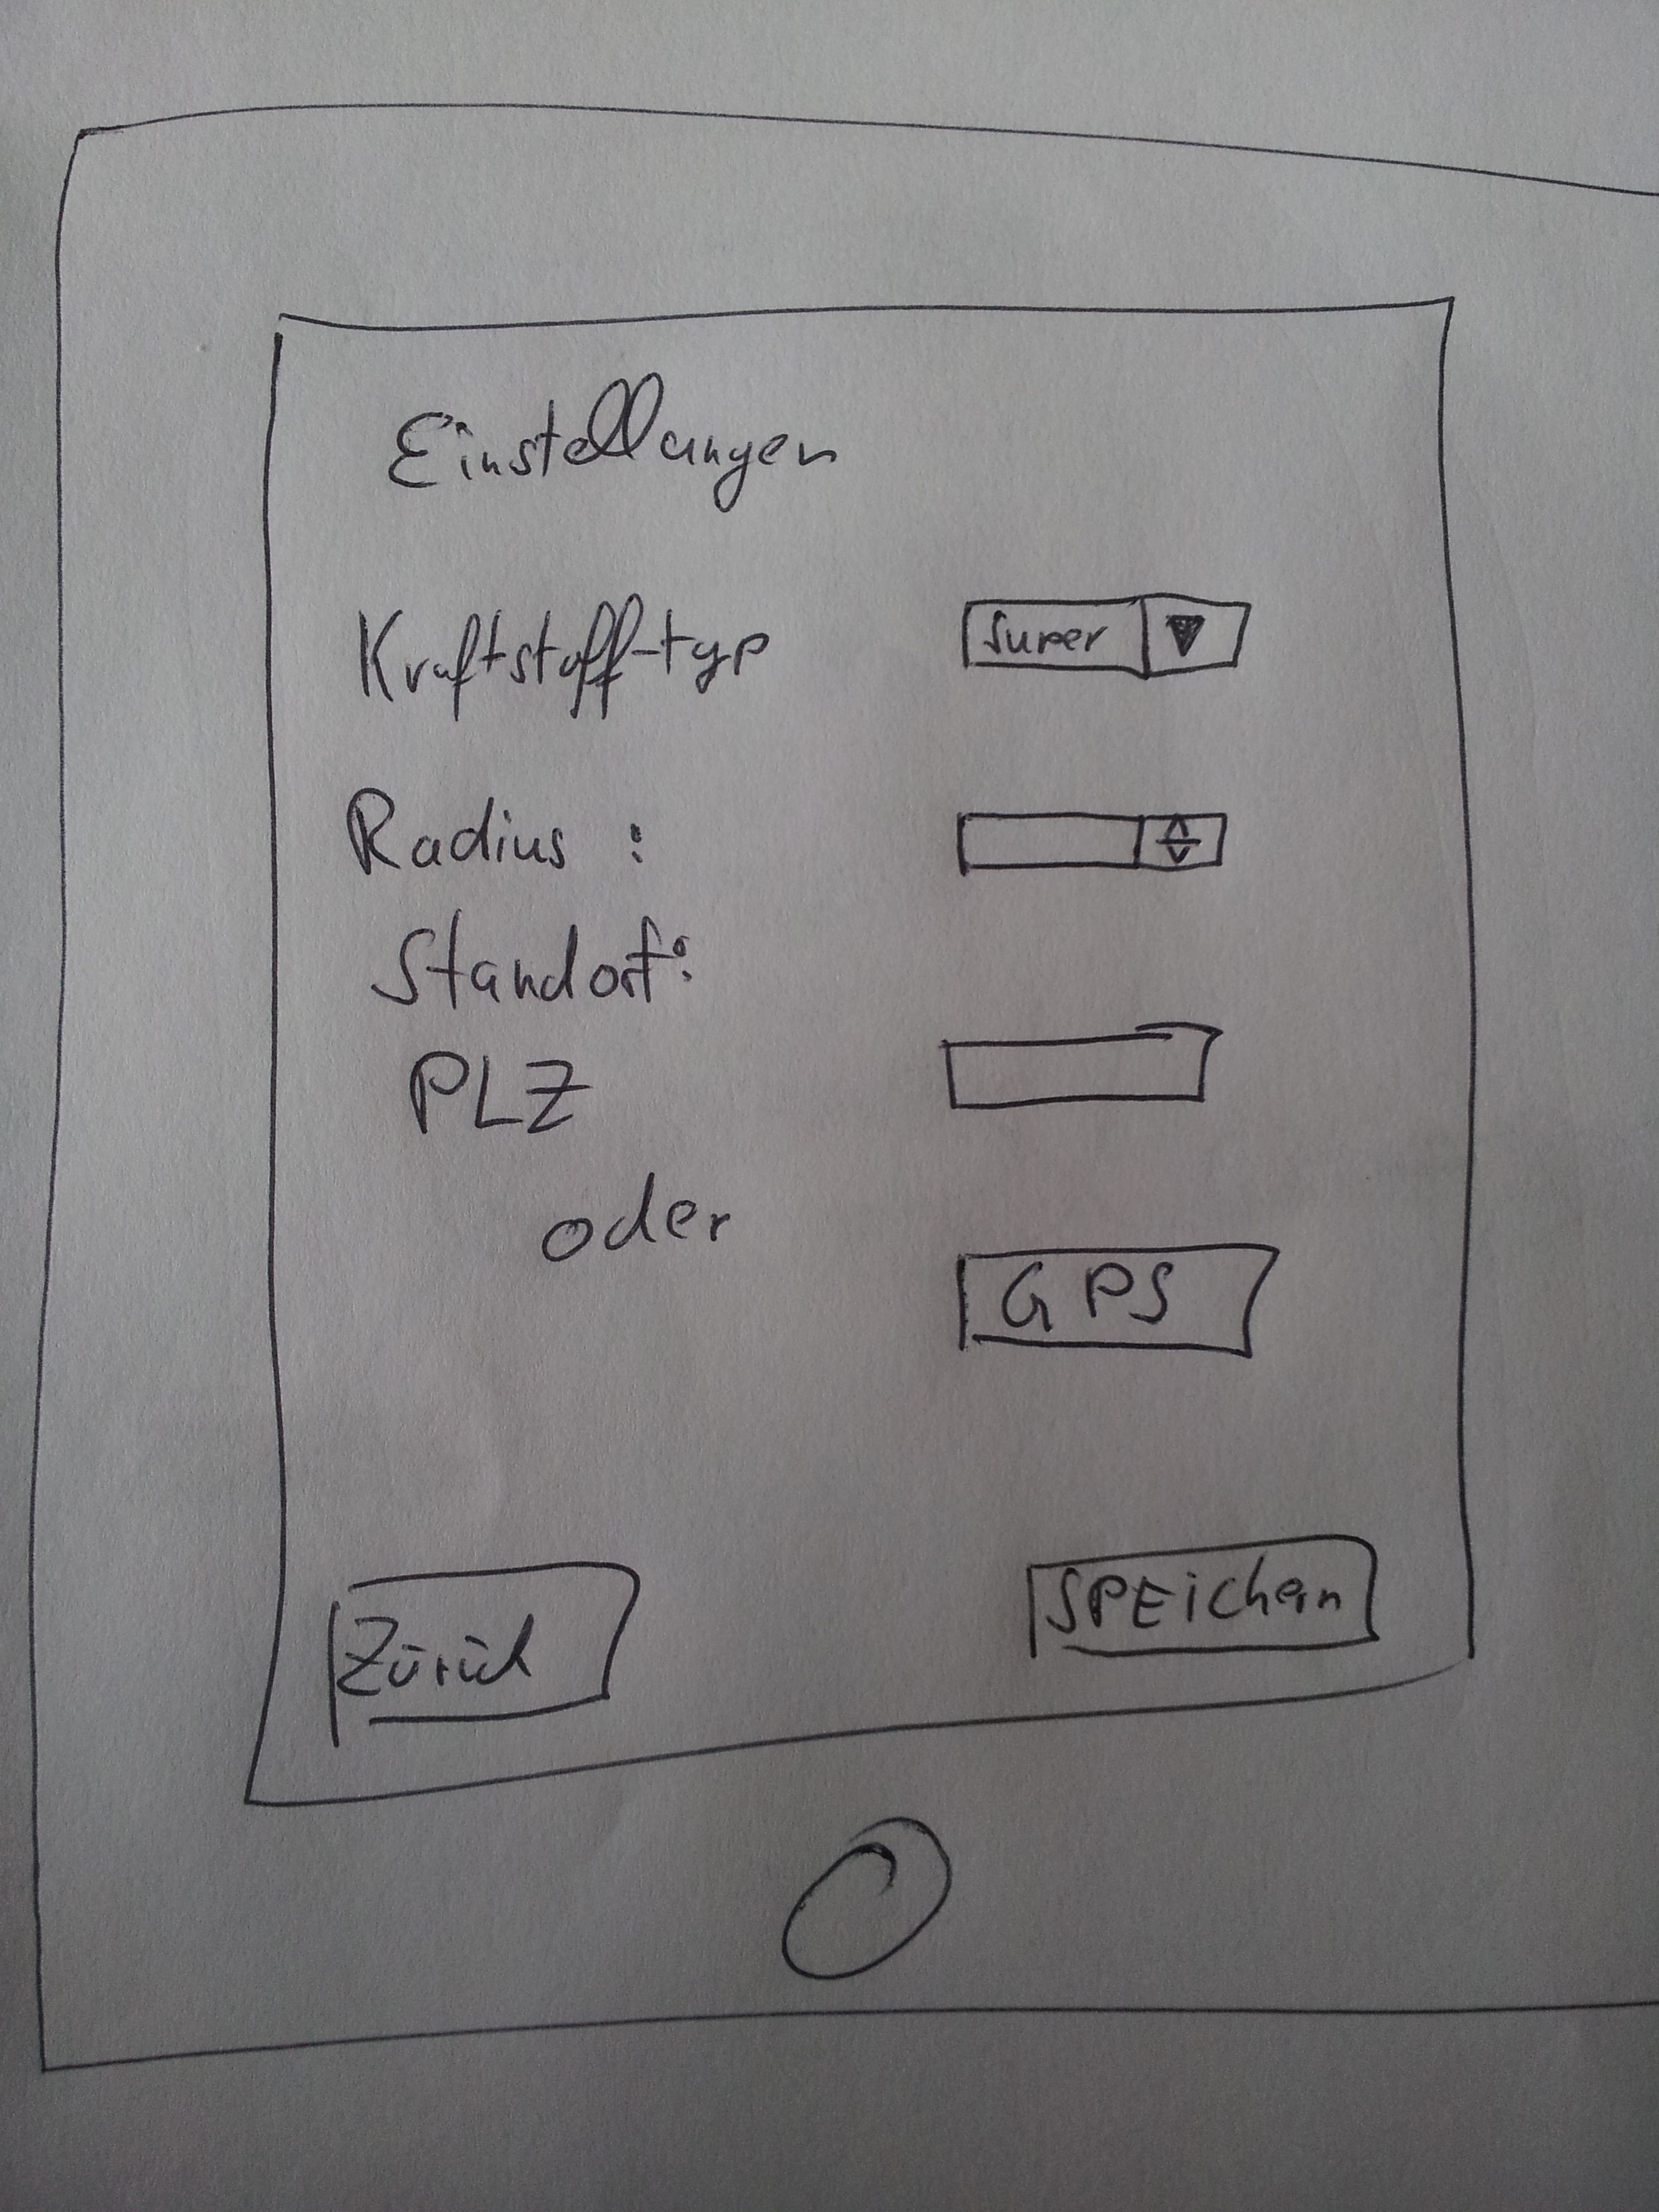 Einstellungen
Kraftstoff-typ Super
Radius :
Standort:
PLZ
oder
GPS
Zürück SPEichern